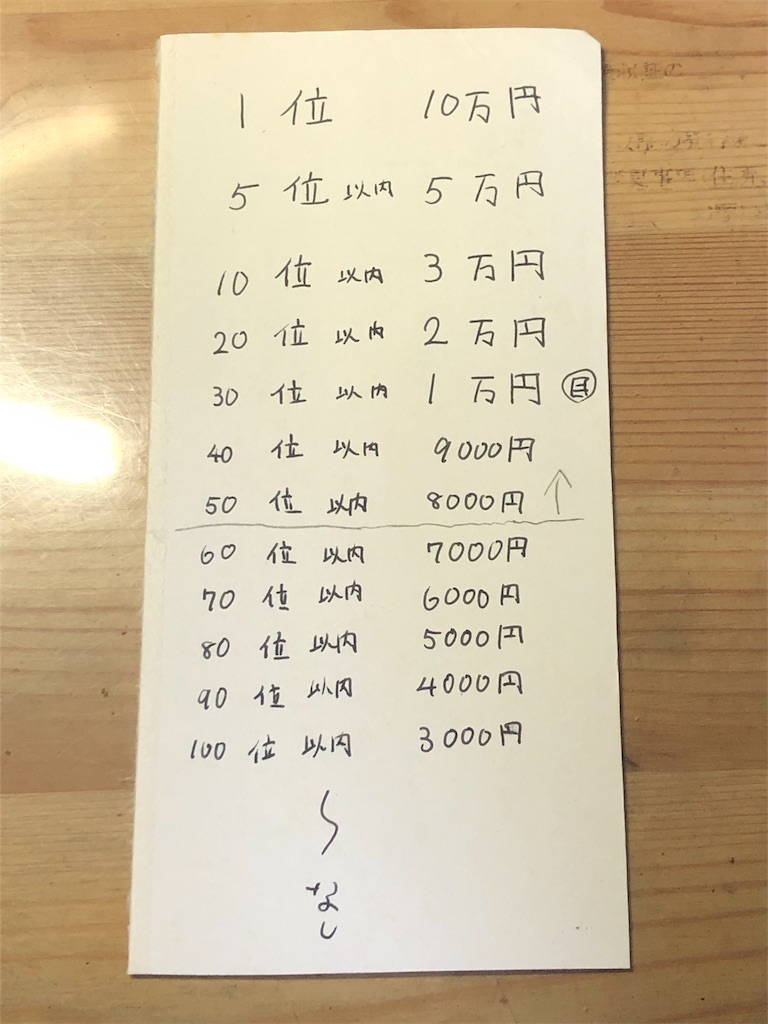 1位 10万円
5位以内 5万円
10位以内 3万円
20位以内 2万円
30位以内 1万円 目
40位以内 9000円
50位以内 8000円 ↑
60位以内 7000円
70位以内 6000円
80位以内 5000円
90位以内 4000円
100位以内 3000円
〜
なし